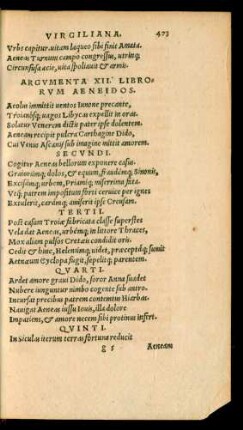 VIRGILIANA. 473
Vrbs capitur. uitam laqueo sibi finit Amata.
Aeneas Turnum campo congressus, utrinq;
Circumfusa acie, uita spoliauit & armis.
ARGVMENTA XII. LIBRO-
RVM AENEIDOS.
Aeolus immittit uentos Iunone precante,
Troianosq; uagos Libycas expellit in oras.
Solatur Venerem dictis pater ipse dolentem.
Aeneam recipit pulcra Carthagine Dido,
Cui Venus Ascanij sub imagine mittit amorem.
SECVNDI.
Cogitur Aeneas bellorum exponere casus.
Graiorumq; dolos, & equum, fraudemq; Sinonis,
Excisamq; urbem, Priamiq; miserrima fata.
Vtq; patrem impositum forti ceruice per ignes
Extulerit, caramq; amiserit ipse Creusam.
TERTII.
Post casum Troiae fabricata classe superstes
Vela dat Aeneas, urbemq; in littore Thraces,
Mox alium pulsos Cretaeis condidit oris.
Cedit & hinc, Helenumq; uidet, praeceptaq; sumit
Aetnaeum & Cyclopa fugit, sepelitq; parentem.
QVARTI.
Ardet amore graui Dido, soror Anna suadet
Nubere iunguntur nimbo cogente sub antro.
Incusat precibus patrem contemtus Hiarbas.
Nauigat Aeneas iussu Iouis, illa dolore
Impatiens, & amore necem sibi protinus infert.
QVINTI.
In siculas iterum terras fortuna reducit
g 5 Aeneam